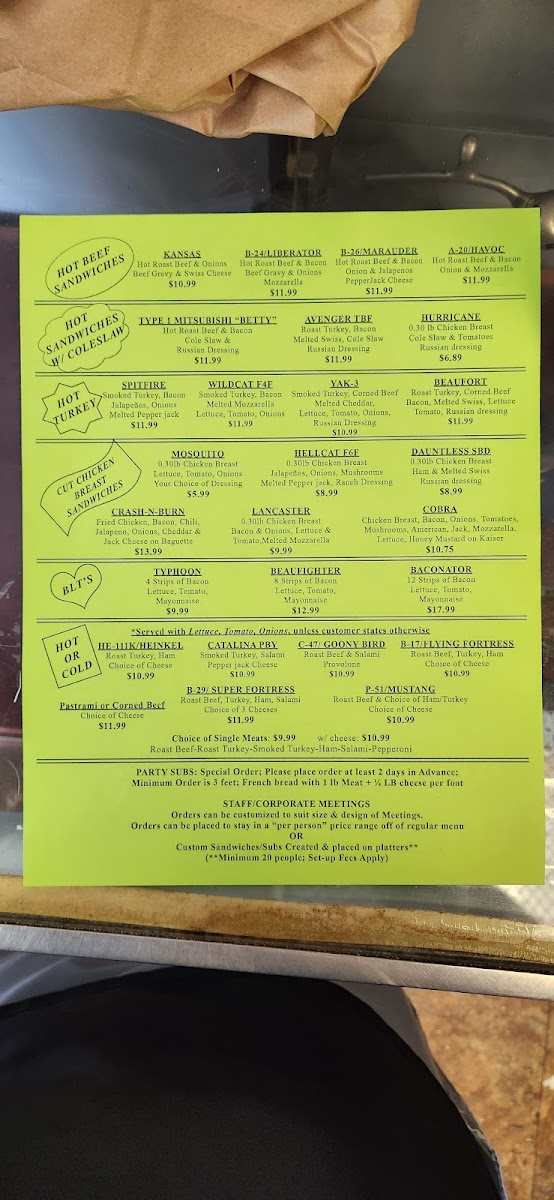 HOT BEEF
SANDWICHES
KANSAS
Hot Roast Beef & Onions
Beef Gravy & Swiss Cheese
$10.99
B-24/LIBERATOR
Hot Roast Beef & Bacon
Beef Gravy & Onions
Mozzarella
$11.99
B-26/MARAUDER
Hot Roast Beef & Bacon
Onion & Jalapenos
PepperJack Cheese
$11.99
A-20/HAVOC
Hot Roast Beef & Bacon
Onion & Mozzarella
$11.99
HOT
SANDWICHES
W/ COLESLAW
TYPE 1 MITSUBISHI "BETTY"
Hot Roast Beef & Bacon
Cole Slaw &
Russian Dressing
$11.99
AVENGER TBF
Roast Turkey, Bacon
Melted Swiss, Cole Slaw
Russian Dressing
$11.99
HURRICANE
0.30 lb Chicken Breast
Cole Slaw & Tomatoes
Russian dressing
$6.89
HOT
TURKEY
SPITFIRE
Smoked Turkey, Bacon
Jalapeños, Onions
Melted Pepper jack
$11.99
WILDCAT F4F
Smoked Turkey, Bacon
Melted Mozzarella
Lettuce, Tomato, Onions
$11.99
YAK-3
Smoked Turkey, Corned Beef
Melted Cheddar,
Lettuce, Tomato, Onions,
Russian Dressing
$10.99
BEAUFORT
Roast Turkey, Corned Beef
Bacon, Melted Swiss, Lettuce
Tomato, Russian dressing
$11.99
CUT CHICKEN
BREAST
SANDWICHES
MOSQUITO
0.30lb Chicken Breast
Lettuce, Tomato, Onions
Your Choice of Dressing
$5.99
HELLCAT F6F
0.30lb Chicken Breast
Jalapeños, Onions, Mushrooms
Melted Pepper jack, Ranch Dressing
$8.99
DAUNTLESS SBD
0.30lb Chicken Breast
Ham & Melted Swiss
Russian dressing
$8.99
CRASH-N-BURN
Fried Chicken, Bacon, Chili,
Jalapeno, Onions, Cheddar &
Jack Cheese on Baguette
$13.99
LANCASTER
0.30lb Chicken Breast
Bacon & Onions, Lettuce &
Tomato,Melted Mozzarella
$9.99
COBRA
Chicken Breast, Bacon, Onions, Tomatoes,
Mushrooms, American, Jack, Mozzarella,
Lettuce, Honey Mustard on Kaiser
$10.75
BLT'S
TYPHOON
4 Strips of Bacon
Lettuce, Tomato,
Mayonnaise
$9.99
BEAUFIGHTER
8 Strips of Bacon
Lettuce, Tomato,
Mayonnaise
$12.99
BACONATOR
12 Strips of Bacon
Lettuce, Tomato,
Mayonnaise
$17.99
HOT
OR
COLD
*Served with Lettuce, Tomato, Onions, unless customer states otherwise
HE-111K/HEINKEL
Roast Turkey, Ham
Choice of Cheese
$10.99
CATALINA PBY
Smoked Turkey, Salami
Pepper jack Cheese
$10.99
C-47/ GOONY BIRD
Roast Beef & Salami
Provolone
$10.99
B-17/FLYING FORTRESS
Roast Beef, Turkey, Ham
Choice of Cheese
$10.99
Pastrami or Corned Beef
Choice of Cheese
$11.99
B-29/ SUPER FORTRESS
Roast Beef, Turkey, Ham, Salami
Choice of 3 Cheeses
$11.99
P-51/MUSTANG
Roast Beef & Choice of Ham/Turkey
Choice of Cheese
$10.99
Choice of Single Meats: $9.99 w/ cheese: $10.99
Roast Beef-Roast Turkey-Smoked Turkey-Ham-Salami-Pepperoni
PARTY SUBS: Special Order; Please place order at least 2 days in Advance;
Minimum Order is 3 feet; French bread with 1 lb Meat + ¼ LB cheese per foot
STAFF/CORPORATE MEETINGS
Orders can be customized to suit size & design of Meetings.
Orders can be placed to stay in a "per person" price range off of regular menu
OR
Custom Sandwiches/Subs Created & placed on platters**
(**Minimum 20 people; Set-up Fees Apply)